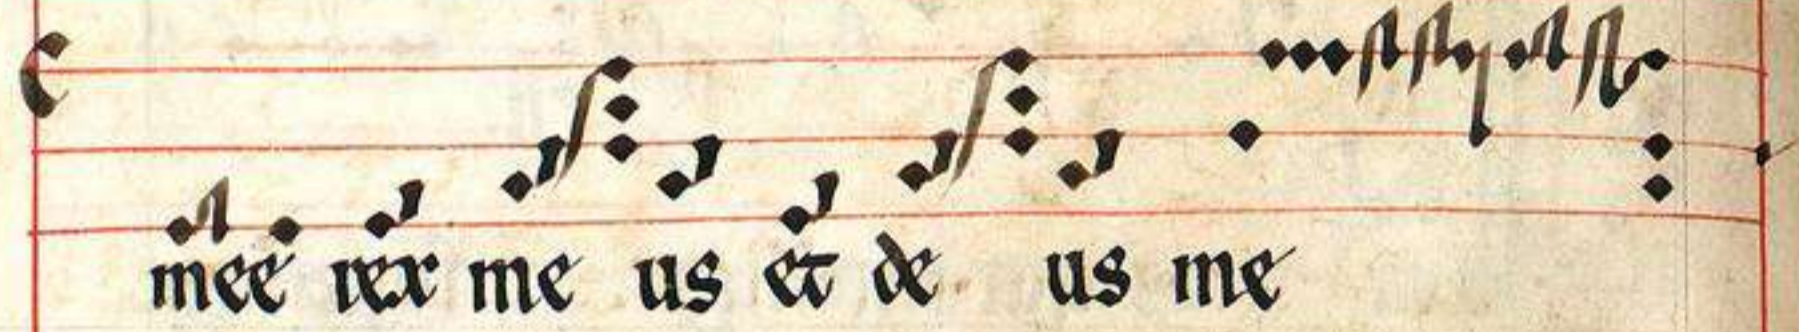 mee rex me us et de us me